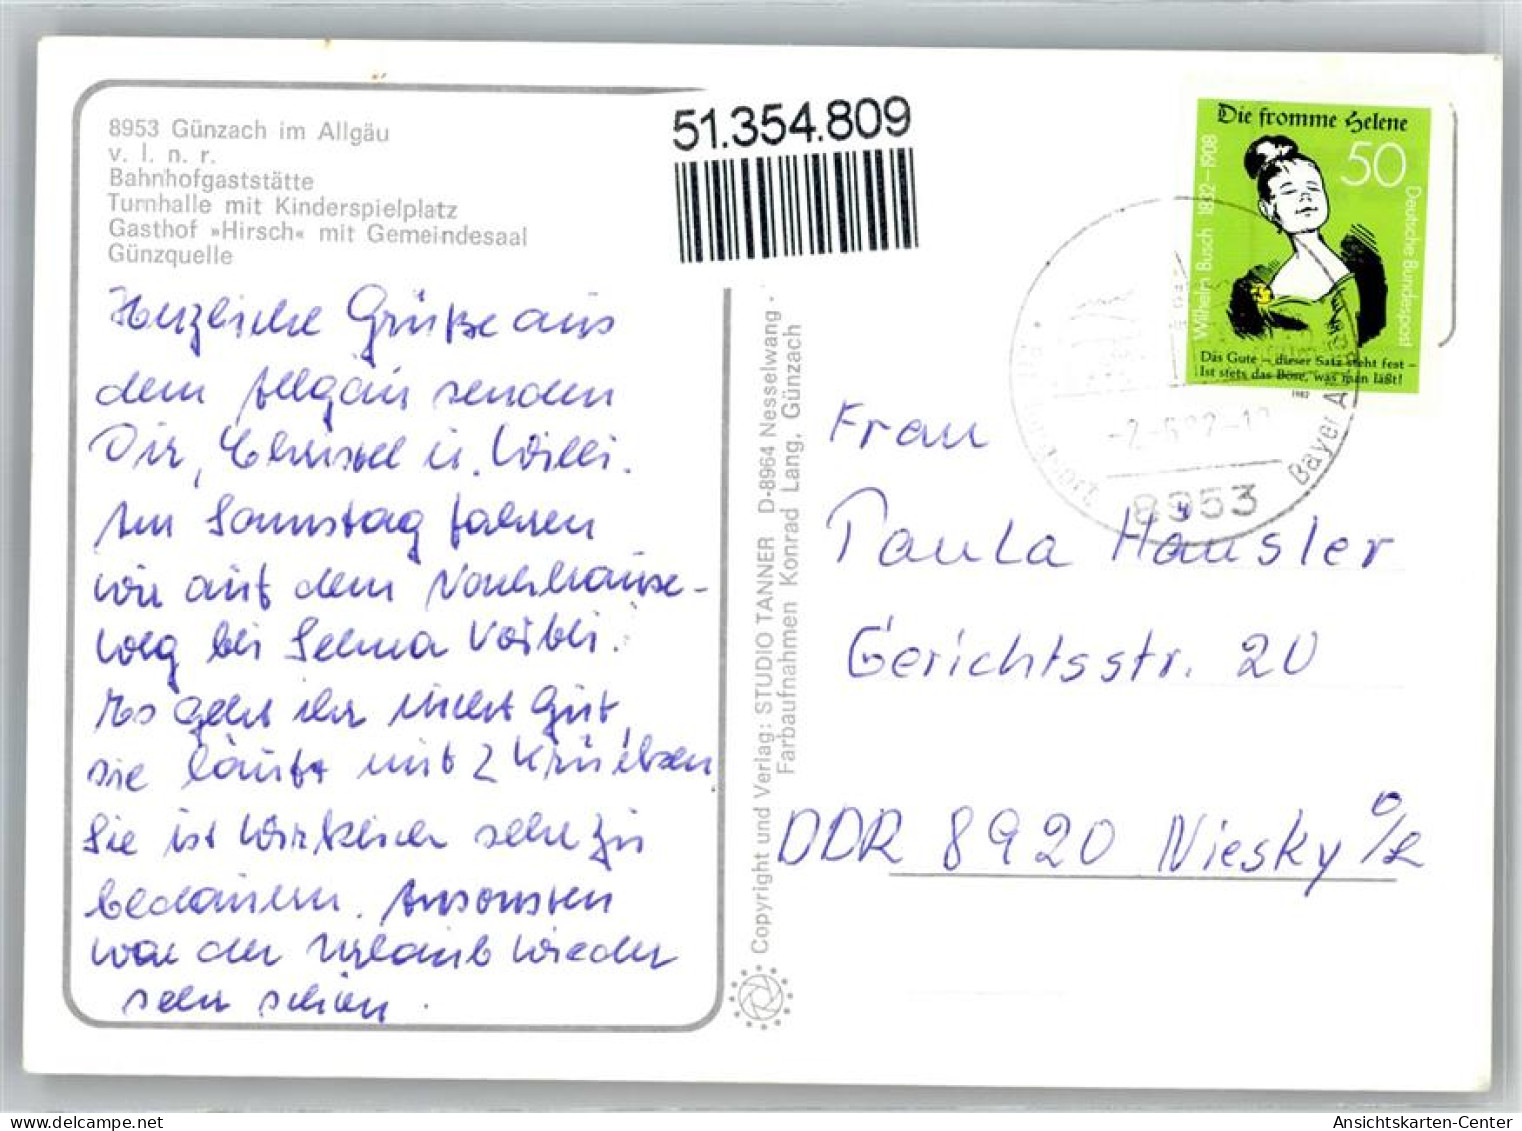 8953 Günzach im Allgäu
v. l. n. r.
Bahnhofgaststätte
Turnhalle mit Kinderspielplatz
Gasthof »Hirsch« mit Gemeindesaal
Günzquelle
Herzliche Grüße aus
dem Allgäu senden
Dir, Christel u. Willi.
Am Sonnstag fahren
wir auf dem Nachhause-
weg bei Selma vorbei.
Es geht ihr nicht gut,
sie läuft mit 2 Krücken
Sie ist wirklich sehr zu
bedauern. Ansonsten
war der Urlaub wieder
sehr schön.
51.354.809
Copyright und Verlag: STUDIO TANNER D-8964 Nesselwang -
Farbaufnahmen Konrad Lang, Günzach
Die fromme Helene
50
Wilhelm Busch 1832–1908
Deutsche Bundespost
Das Gute – dieser Satz steht fest –
Ist stets das Böse, was man läßt!
1982
8953
Frau
Paula Häusler
Gerichtsstr. 20
DDR 8920 Niesky O/L
Ansichtskarten-Center